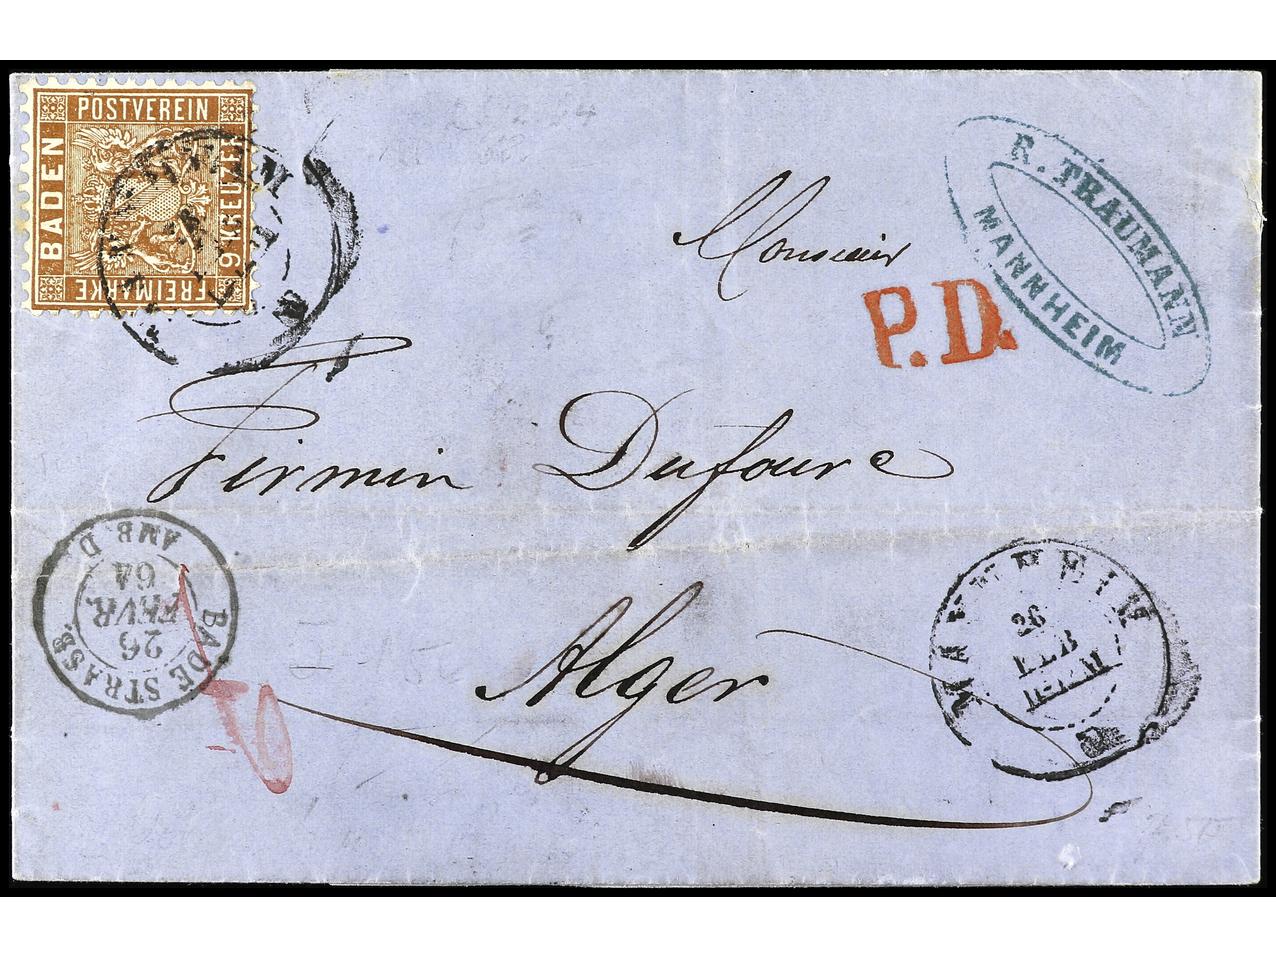 POSTVEREIN
BADEN
9 KREUZER
FREIMARKE
R. TRAUMANN
MANNHEIM.
Monsieur
P.D.
Firmin Dufoure
Alger
BADE STRASB.
26
FEVR.
64
AMB D
MANNHEIM
26
FEB